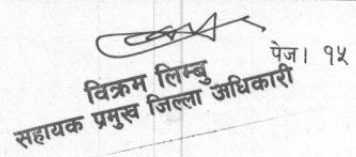 पेज। १५
विक्रम लिम्बु
सहायक प्रमुख जिल्ला अधिकारी